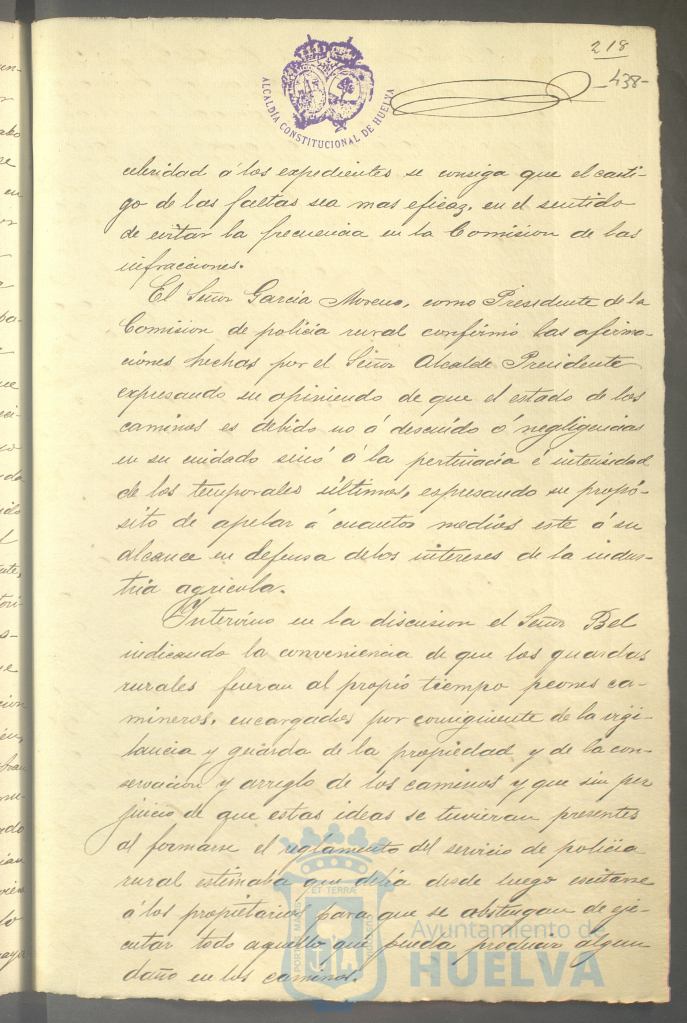 218
-438-
ALCALDÍA CONSTITUCIONAL DE HUELVA
celeridad á los expedientes se consiga que el casti-
go de las faltas sea mas eficaz, en el sentido
de evitar la frecuencia en la Comision de las
infracciones.
El Señor García Moreno, como Presidente de la
Comision de policía rural confirmó las afirma-
ciones hechas por el Señor Alcalde Presidente
expresando su opiniendo de que el estado de los
caminos es debido no á descuido ó negligencias
en su cuidado sinó á la pertinacia é intensidad
de los temporales últimos, espresando su propó-
sito de apelar á cuantos medios este á su
alcance en defensa de los intereses de la indus-
tria agricola.
Intervino en la discusion el Señor Bel
indicando la conveniencia de que los guardas
rurales fueran al propio tiempo peones ca-
mineros, encargados por consiguiente de la vigi-
lancia y guarda de la propiedad y de la con-
servacion y arreglo de los caminos y que sin per
juicio de que estas ideas se tuvieran presentes
al formarse el reglamento del servicio de policía
rural estimaba que debía desde luego escitarse
á los propietarios para que se abstengan de eje-
cutar todo aquello que pueda producir algun
daño en los caminos.
Ayuntamiento de
HUELVA